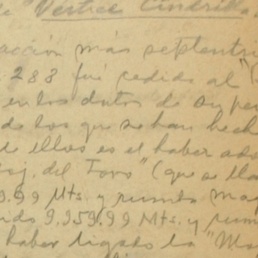 e "Vertice Cindrillo
acción más septentri
. 288 fué cedido al "(
en los datos de supe
de los que se han hech
de ellos es el haber ado
oj. del Toro" (que se lla
9.99 Mts. y rumbo mag
ndo 9.959.99 Mts. y rum
haber ligado la "Mo